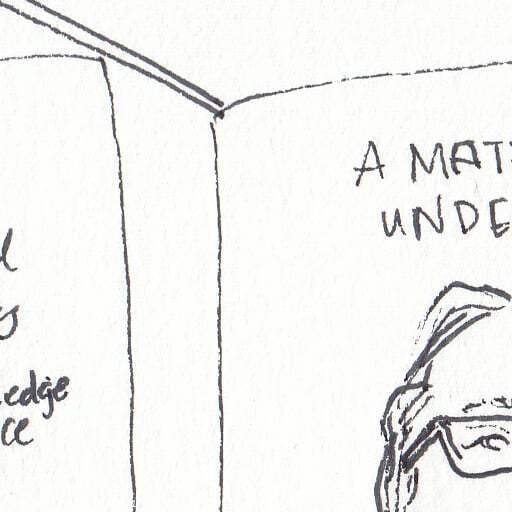 edge
ce
A MAT
UNDE